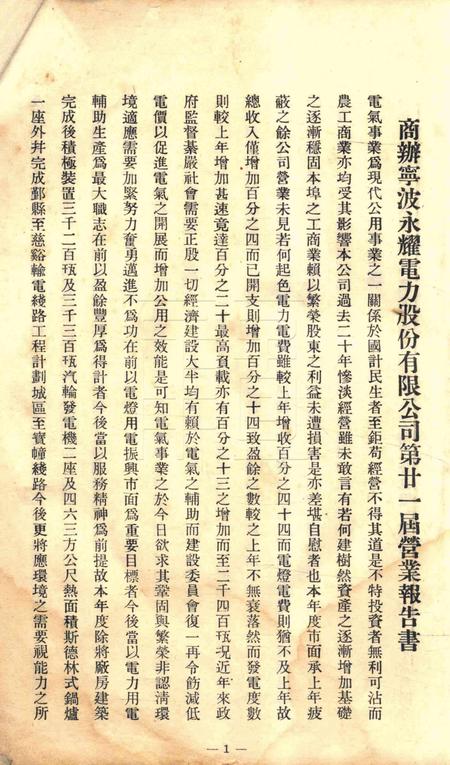 商辦寧波永耀電力股份有限公司第廿一屆營業報告書
電氣事業爲現代公用事業之一關係於國計民生者至鉅苟經營不得其道是不特投資者無利可沾而
農工商業亦均受其影響本公司過去二十年慘淡經營雖未敢言有若何建樹然資產之逐漸增加基礎
之逐漸穩固本埠之工商業賴以繁榮股東之利益未遭損害是亦差堪自慰者也本年度市面承上年疲
蔽之餘公司營業未見若何起色電力電費雖較上年增收百分之四十四而電燈電費則猶不及上年故
總收入僅增加百分之四而已開支則增加百分之十四致盈餘之數較之上年不無衰落然而發電度數
則較上年增加甚速竟達百分之二十最高負載亦有百分之十三之增加而至二千四百瓩況近年來政
府監督綦嚴社會需要正殷一切經濟建設大半均有賴於電氣之輔助而建設委員會復一再令飭減低
電價以促進電氣之開展而增加公用之效能是可知電氣事業之於今日欲求其鞏固與繁榮非認淸環
境適應需要加緊努力奮勇邁進不爲功在前以電燈用電振興市面爲重要目標者今後當以電力用電
輔助生產爲最大職志在前以盈餘豐厚爲得計者今後當以服務精神爲前提故本年度除將廠房建築
完成後積極裝置三千二百瓩及三千三百瓩汽輪發電機二座及四六三方公尺熱面積斯德林式鍋爐
一座外幷完成鄞縣至慈谿輸電綫路工程計劃城區至寶幢綫路今後更將應環境之需要視能力之所
— 1 —